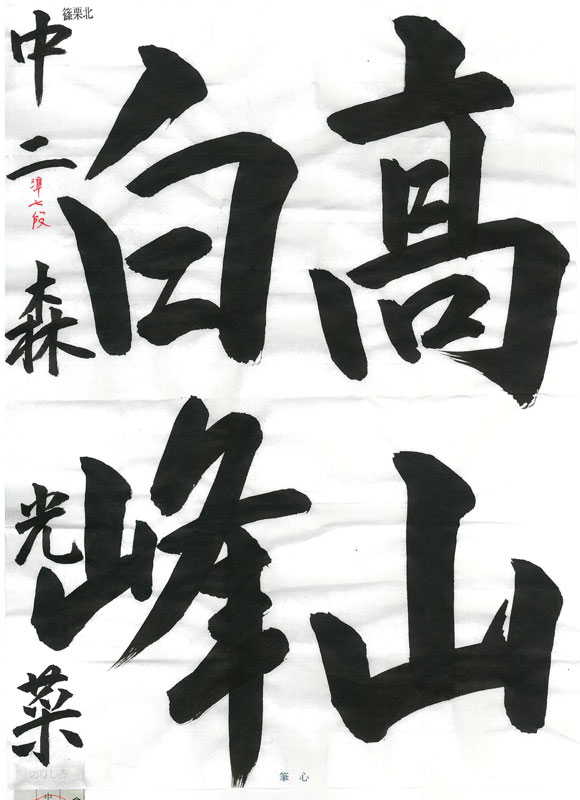 高山
白峰
篠栗北
中二 森 光菜
準七段
のりしろ
筆心